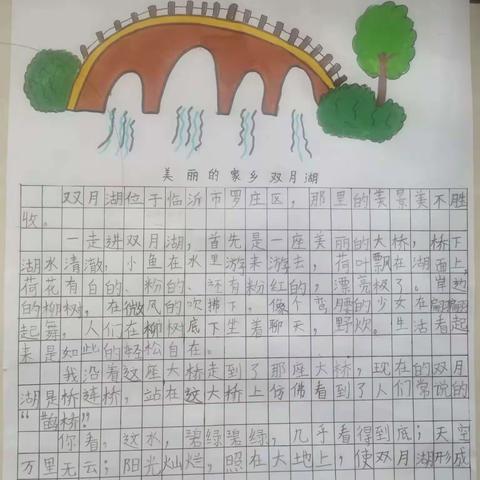 美丽的家乡双月湖
双月湖位于临沂市罗庄区，那里的美景美不胜
收。
一走进双月湖，首先是一座美丽的大桥，桥下
湖水清澈，小鱼在水里游来游去，荷叶飘在湖面上，
荷花有白的、粉的、还有粉红的，漂亮极了。岸边
的柳树，在微风的吹拂下，像个弯腰的少女在翩翩
起舞，人们在柳树底下坐着聊天，野炊。生活看起
来是如此的轻松自在。
我沿着这座大桥走到了那座大桥，现在的双月
湖是桥连桥，站在这大桥上仿佛看到了人们常说的
“鹊桥”！
你看，这水，碧绿碧绿，几乎看得到底；天空
万里无云；阳光灿烂，照在大地上，使双月湖形成